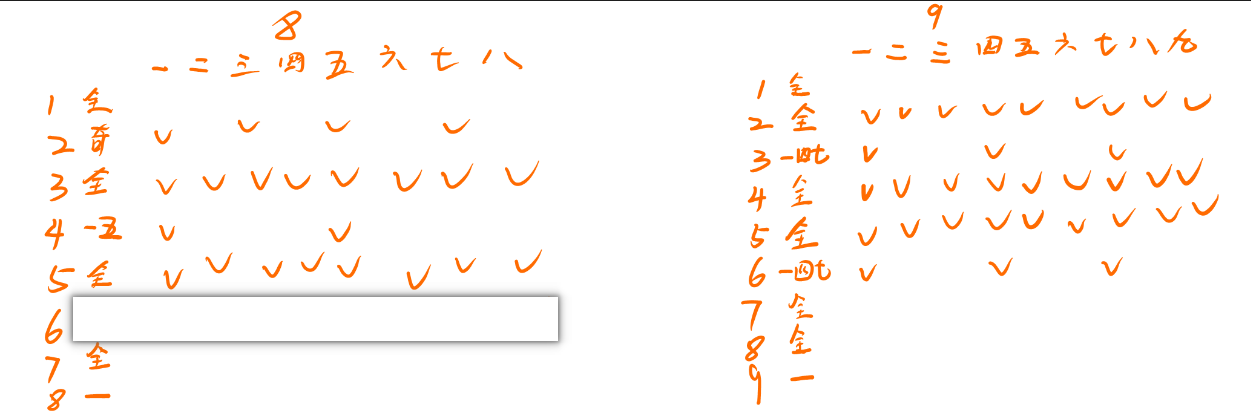 8
一 二 三 四 五 六 七 八
1 全
2 奇 ✓ ✓ ✓ ✓
3 全 ✓ ✓ ✓ ✓ ✓ ✓ ✓ ✓
4 一五 ✓ ✓
5 全 ✓ ✓ ✓ ✓ ✓ ✓ ✓ ✓
6
7 全
8 一
9
一 二 三 四 五 六 七 八 九
1 全
2 全 ✓ ✓ ✓ ✓ ✓ ✓ ✓ ✓ ✓
3 一四七 ✓ ✓ ✓
4 全 ✓ ✓ ✓ ✓ ✓ ✓ ✓ ✓ ✓
5 全 ✓ ✓ ✓ ✓ ✓ ✓ ✓ ✓ ✓
6 一四七 ✓ ✓ ✓
7 全
8 全
9 一